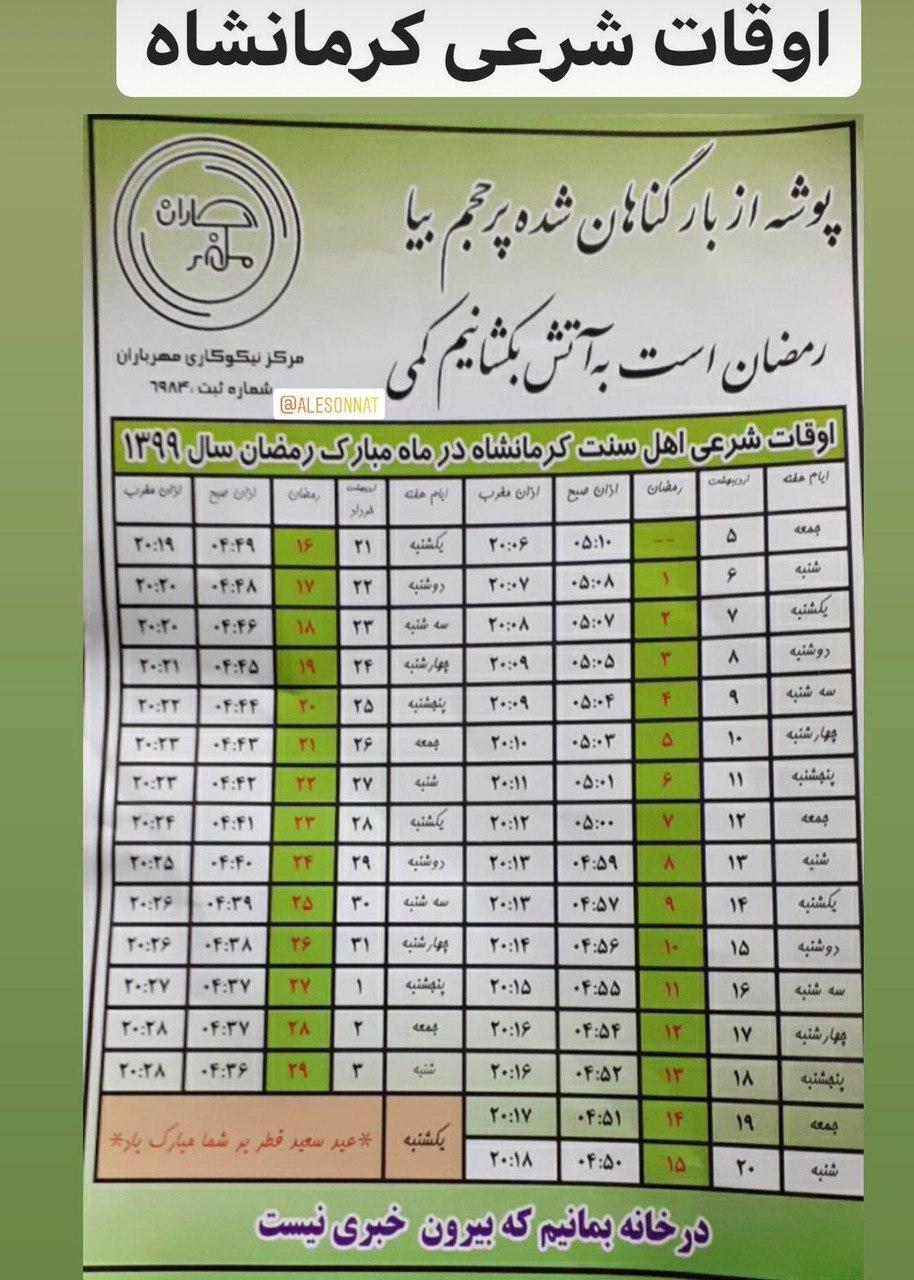 اوقات شرعی کرمانشاه
پوشه از بار گناهان شده پر حجم بیا
رمضان است به آتش بکشانیم کمی
مهرباران
مرکز نیکوکاری مهرباران
شماره ثبت :۶۹۸۴
@ALESONNAT
اوقات شرعی اهل سنت کرمانشاه در ماه مبارک رمضان سال ۱۳۹۹
ایام هفته اردیبهشت رمضان اذان صبح اذان مغرب ایام هفته اردیبهشت خرداد رمضان اذان صبح اذان مغرب
جمعه ۵ -- ۰۵:۱۰ ۲۰:۰۶ یکشنبه ۲۱ ۱۶ ۰۴:۴۹ ۲۰:۱۹
شنبه ۶ ۱ ۰۵:۰۸ ۲۰:۰۷ دوشنبه ۲۲ ۱۷ ۰۴:۴۸ ۲۰:۲۰
یکشنبه ۷ ۲ ۰۵:۰۷ ۲۰:۰۸ سه شنبه ۲۳ ۱۸ ۰۴:۴۶ ۲۰:۲۰
دوشنبه ۸ ۳ ۰۵:۰۵ ۲۰:۰۹ چهارشنبه ۲۴ ۱۹ ۰۴:۴۵ ۲۰:۲۱
سه شنبه ۹ ۴ ۰۵:۰۴ ۲۰:۰۹ پنجشنبه ۲۵ ۲۰ ۰۴:۴۴ ۲۰:۲۲
چهارشنبه ۱۰ ۵ ۰۵:۰۳ ۲۰:۱۰ جمعه ۲۶ ۲۱ ۰۴:۴۳ ۲۰:۲۳
پنجشنبه ۱۱ ۶ ۰۵:۰۱ ۲۰:۱۱ شنبه ۲۷ ۲۲ ۰۴:۴۲ ۲۰:۲۳
جمعه ۱۲ ۷ ۰۵:۰۰ ۲۰:۱۲ یکشنبه ۲۸ ۲۳ ۰۴:۴۱ ۲۰:۲۴
شنبه ۱۳ ۸ ۰۴:۵۹ ۲۰:۱۳ دوشنبه ۲۹ ۲۴ ۰۴:۴۰ ۲۰:۲۵
یکشنبه ۱۴ ۹ ۰۴:۵۷ ۲۰:۱۳ سه شنبه ۳۰ ۲۵ ۰۴:۳۹ ۲۰:۲۶
دوشنبه ۱۵ ۱۰ ۰۴:۵۶ ۲۰:۱۴ چهارشنبه ۳۱ ۲۶ ۰۴:۳۸ ۲۰:۲۶
سه شنبه ۱۶ ۱۱ ۰۴:۵۵ ۲۰:۱۵ پنجشنبه ۱ ۲۷ ۰۴:۳۷ ۲۰:۲۷
چهارشنبه ۱۷ ۱۲ ۰۴:۵۴ ۲۰:۱۶ جمعه ۲ ۲۸ ۰۴:۳۷ ۲۰:۲۸
پنجشنبه ۱۸ ۱۳ ۰۴:۵۲ ۲۰:۱۶ شنبه ۳ ۲۹ ۰۴:۳۶ ۲۰:۲۸
جمعه ۱۹ ۱۴ ۰۴:۵۱ ۲۰:۱۷ یکشنبه *عید سعید فطر بر شما مبارک باد*
شنبه ۲۰ ۱۵ ۰۴:۵۰ ۲۰:۱۸
در خانه بمانیم که بیرون خبری نیست